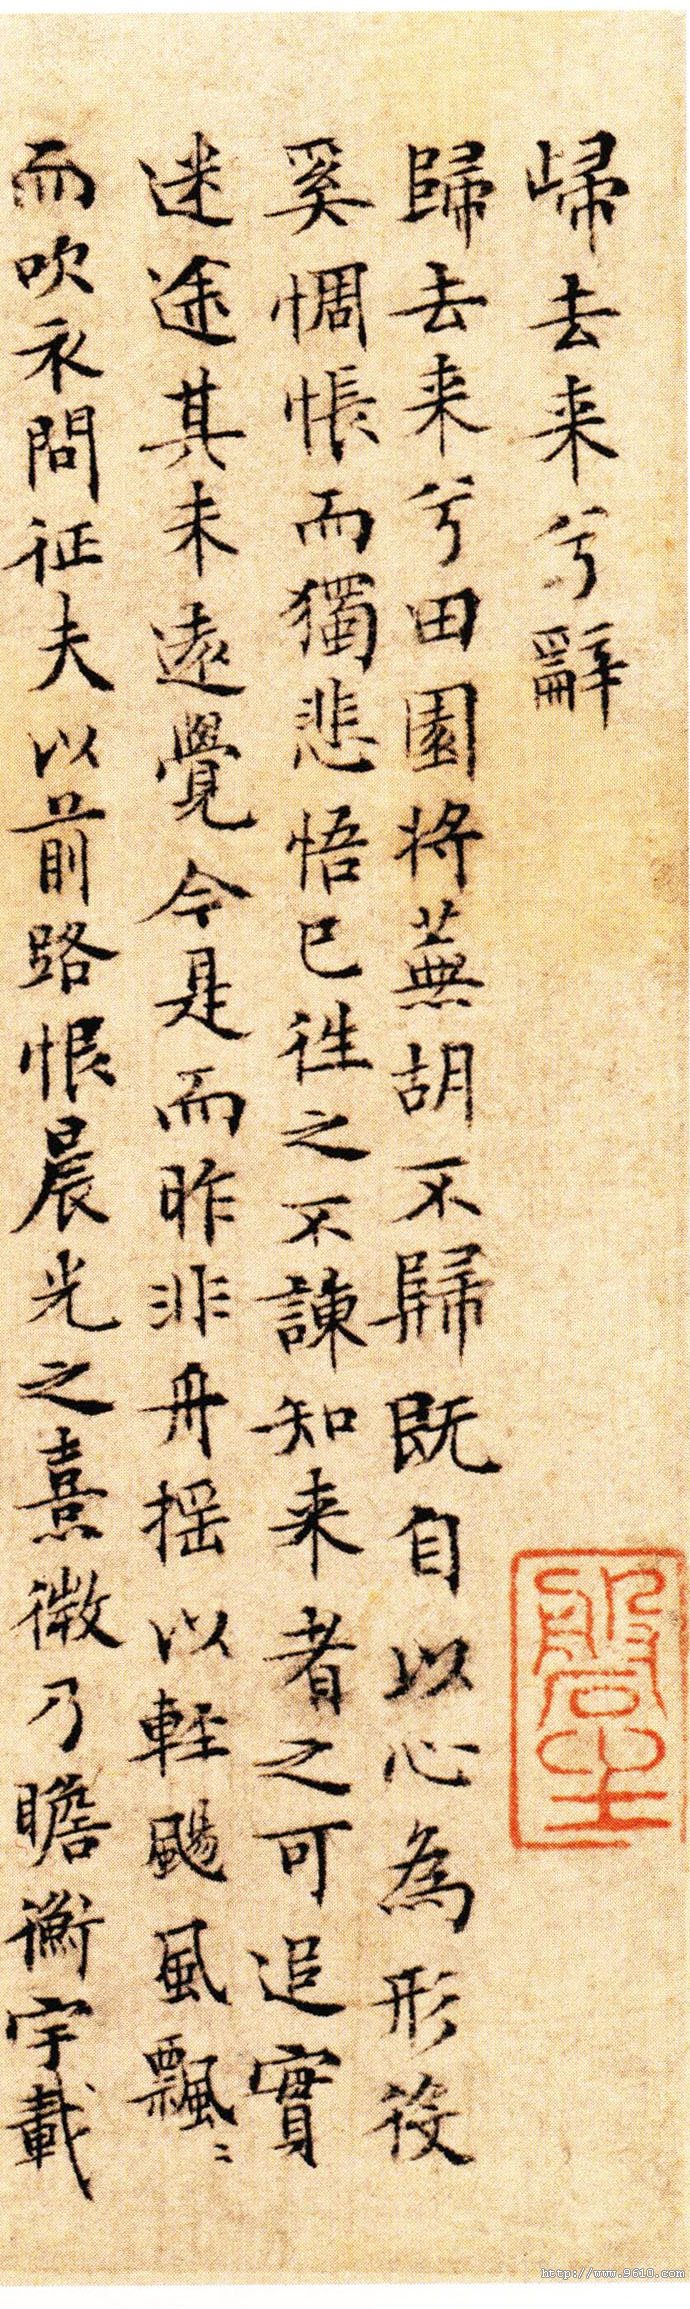 歸去来兮辭
歸去来兮田園将蕪胡不歸既自以心為形役
奚惆悵而獨悲悟已往之不諫知来者之可追實
迷途其未遠覺今是而昨非舟揺以輕颺風飄〻
而吹衣問征夫以前路恨晨光之熹微乃瞻衡宇載
http://www.9610.com